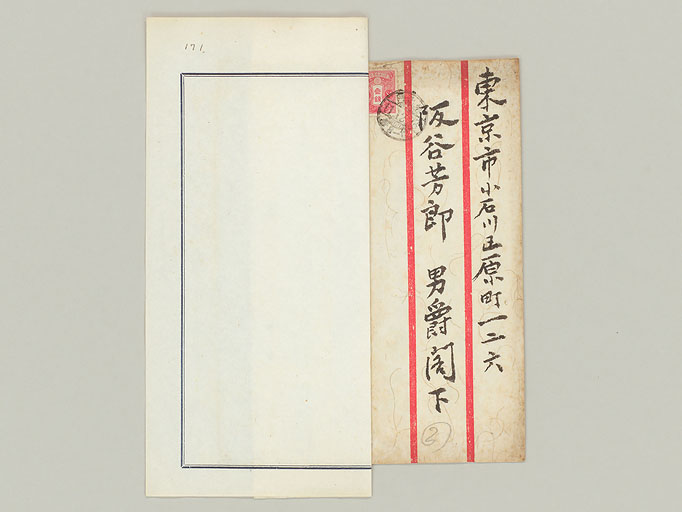 東京市小石川区原町一二六
阪谷芳郎 男爵閣下
②
171